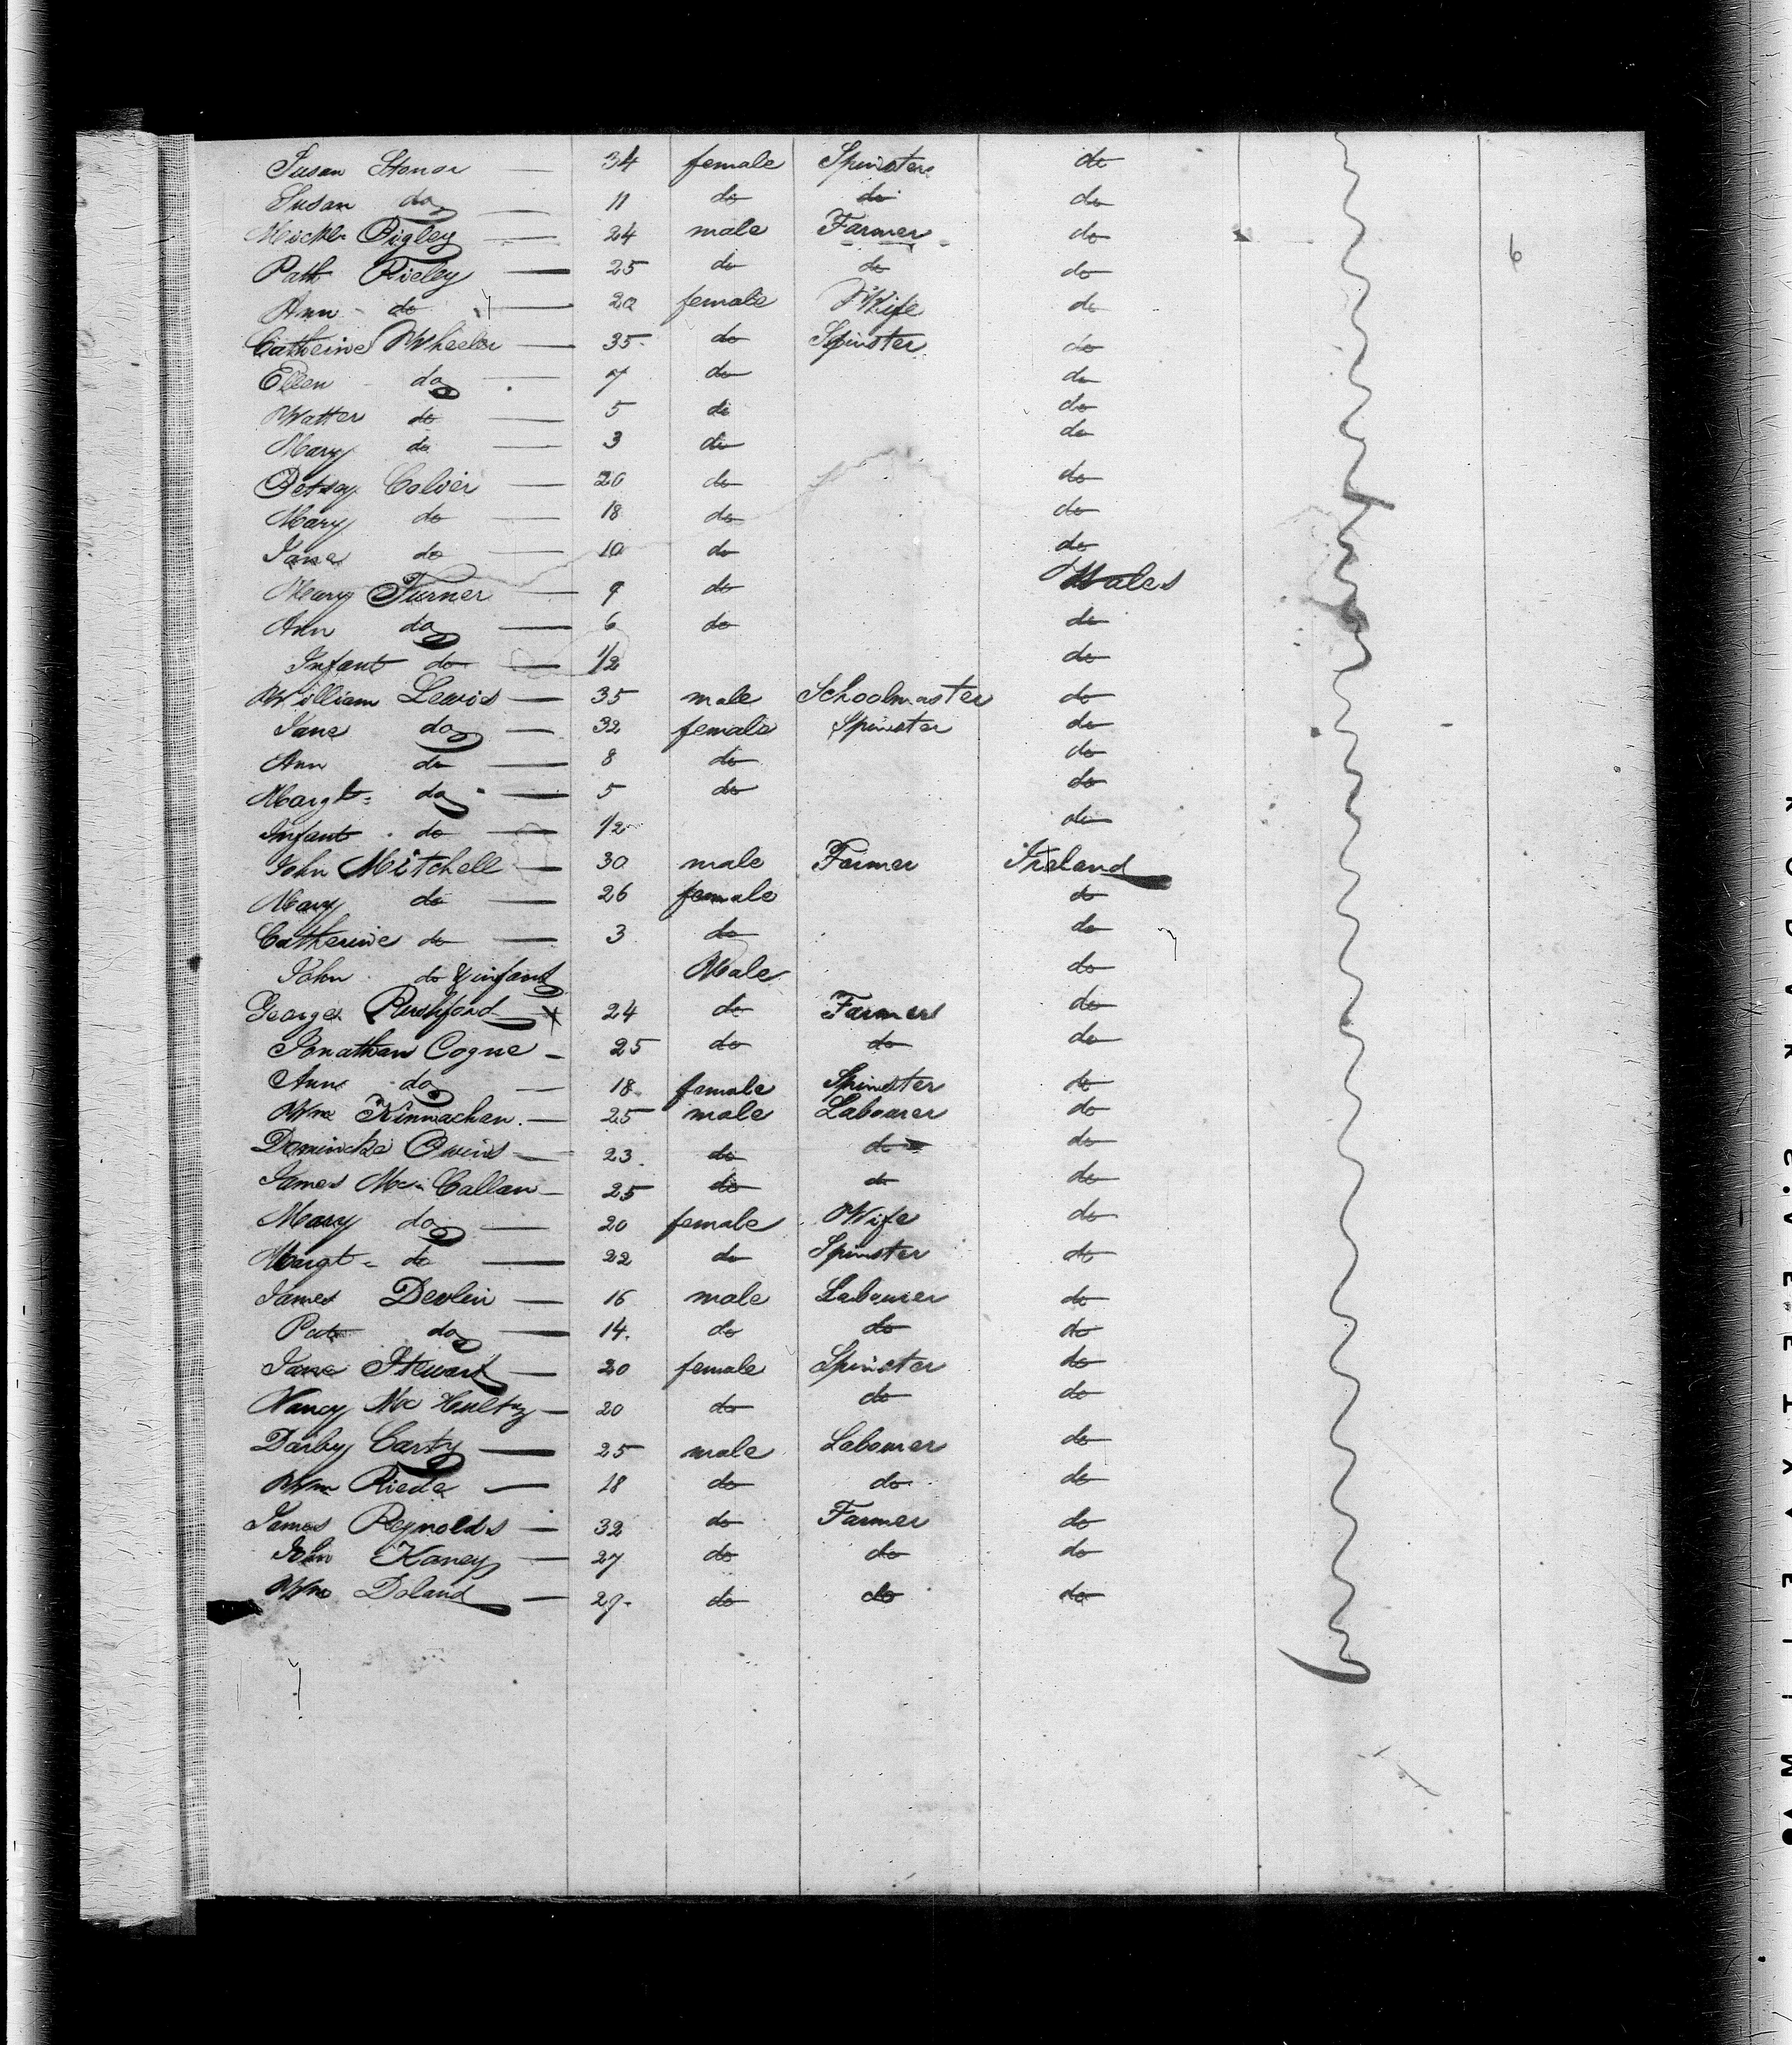 Susan Stonor — 34 female Spinster do
Susan do — 11 do do do
Michl Rigley — 24 male Farmer do
Path Rieley — 25 do do do 6
Ann do — 20 female Wife do
Catherine Wheeler — 35 do Spinster do
Ellen do — 7 do do
Watter do — 5 do do
Mary do — 3 do do
Betsey Colvier — 20 do do
Mary do — 18 do do
Jane do — 10 do do
Mary Turner — 9 do Wales
Ann do — 6 do do
Infant do — 1/2 do
William Lewis — 35 male Schoolmaster do
Jane do — 32 female Spinster do
Ann do — 8 do do
Margt do — 5 do do
Infant do — 1/2 do
John Mitchell — 30 male Farmer Ireland
Mary do — 26 female do
Catherine do — 3 do do
John do infant Male do
George Rushford — 24 do Farmer do
Jonathan Cogne — 25 do do do
Ann do — 18 female Spinster do
Wm Kinnachan — 25 male Labourer do
Domincke Owins — 23 do do do
James Mc Callan — 25 do do do
Mary do — 20 female Wife do
Margt do — 22 do Spinster do
James Devlin — 16 male Labourer do
Pat do — 14 do do do
Jane Stewart — 20 female Spinster do
Nancy Mc — 20 do do do
Darby Carty — 25 male Labourer do
Wm Riede — 18 do do do
James Reynolds — 32 do Farmer do
John Kaney — 27 do do do
Wm Doland — 29 do do do